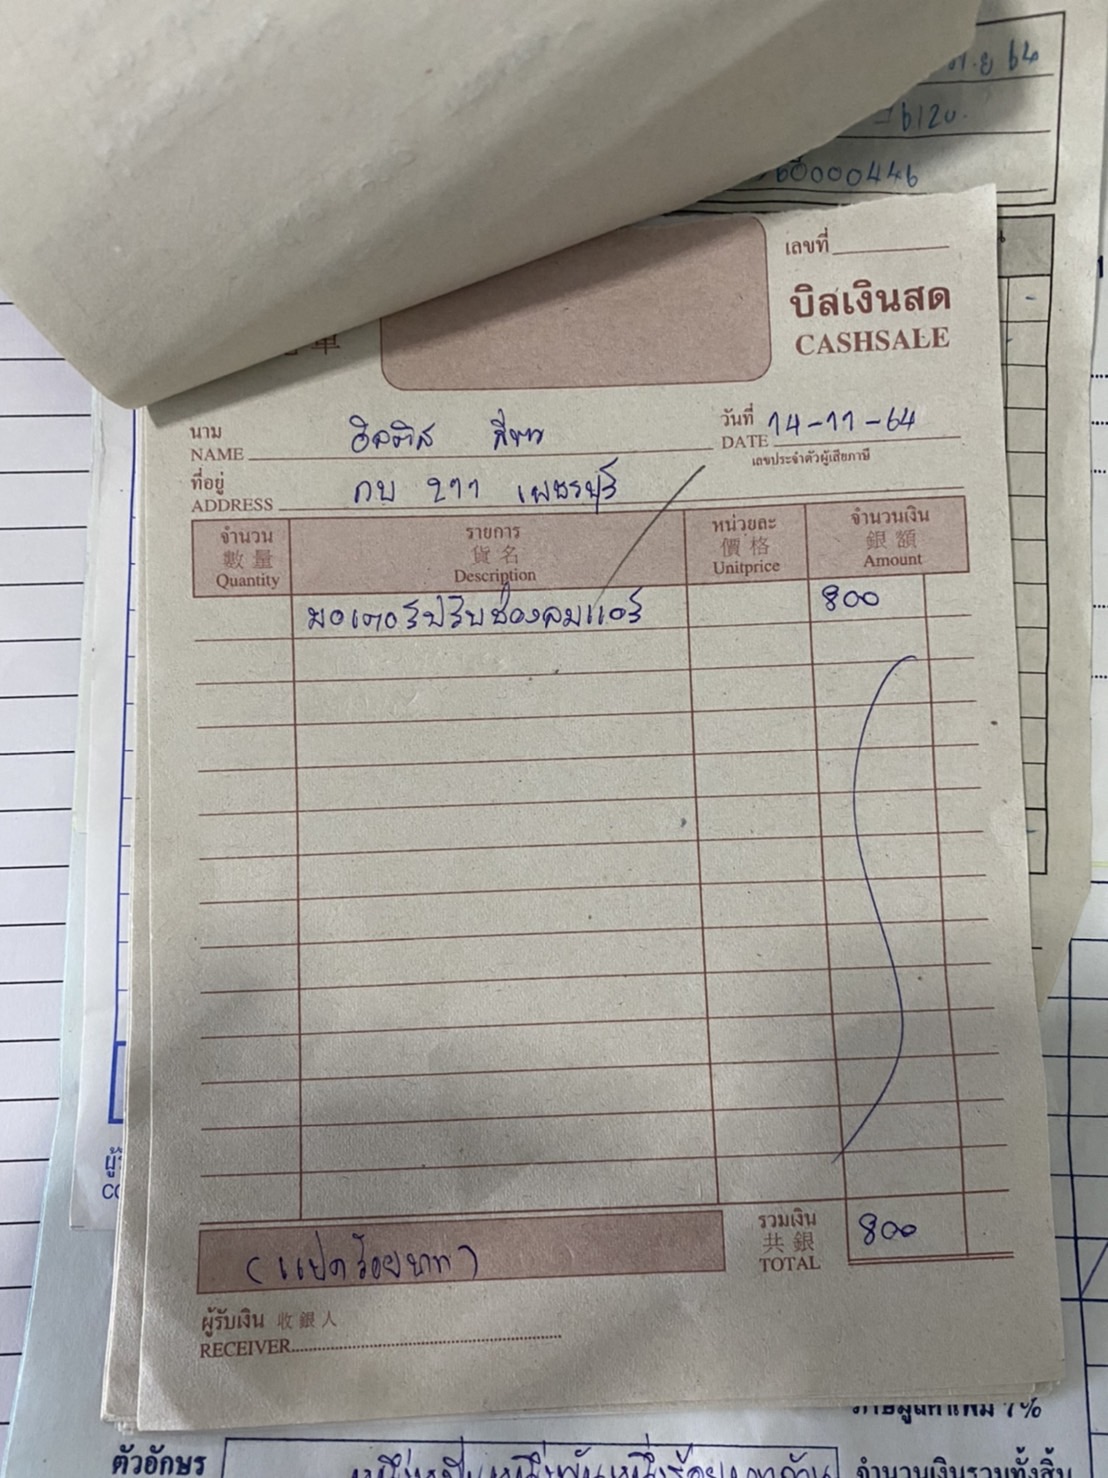 64
6120.
60000446
เลขที่
บิลเงินสด
CASHSALE
單
นาม
NAME
อิลติส สีขาว
วันที่ 14-11-64
DATE
เลขประจำตัวผู้เสียภาษี
ที่อยู่
ADDRESS
กบ 277 เพชรบุรี
จำนวน รายการ หน่วยละ จำนวนเงิน
數量 貨名 價格 銀額
Quantity Description Unitprice Amount
มอเตอร์ปรับช่องลมแอร์ 800
รวมเงิน
共銀
TOTAL
800
(แปดร้อยบาท)
ผู้รับเงิน 收銀人
RECEIVER
ภาษีมูลค่าเพิ่ม 7%
ตัวอักษร
จำนวนเงินรวมทั้งสิ้น